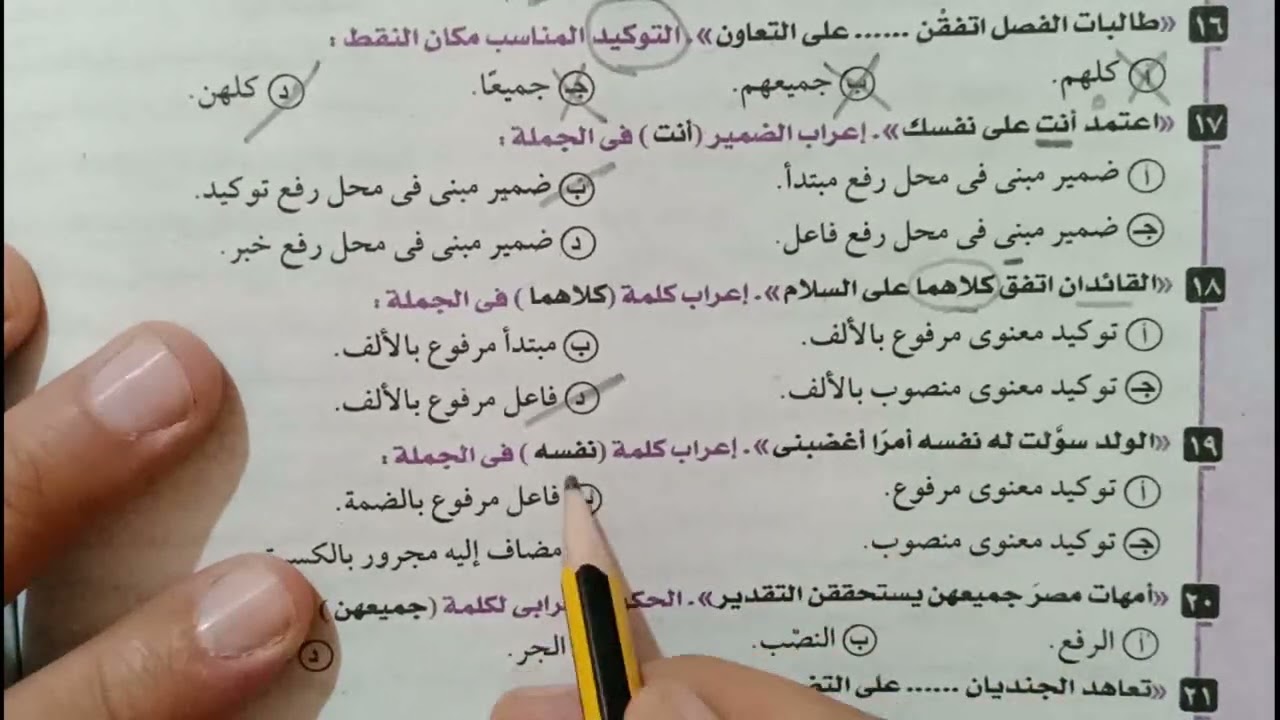 ١٦ «طالبات الفصل اتفقْن ...... على التعاون». التوكيد المناسب مكان النقط :
أ كلهم. ب جميعهم. جـ جميعًا. د كلهن.
١٧ «اعتمدْ أنت على نفسك». إعراب الضمير (أنت) فى الجملة :
أ ضمير مبنى فى محل رفع مبتدأ. ب ضمير مبنى فى محل رفع توكيد.
جـ ضمير مبنى فى محل رفع فاعل. د ضمير مبنى فى محل رفع خبر.
١٨ «القائدان اتفق كلاهما على السلام». إعراب كلمة (كلاهما) فى الجملة :
أ توكيد معنوى مرفوع بالألف. ب مبتدأ مرفوع بالألف.
جـ توكيد معنوى منصوب بالألف. د فاعل مرفوع بالألف.
١٩ «الولد سوَّلت له نفسه أمرًا أغضبنى». إعراب كلمة (نفسه) فى الجملة :
أ توكيد معنوى مرفوع. ب فاعل مرفوع بالضمة.
جـ توكيد معنوى منصوب. مضاف إليه مجرور
٢٠ «أمهات مصرَ جميعهن يستحققن التقدير». لكلمة (جميعهن)
أ الرفع. ب النصْب. الجر. د
٢١ «تعاهد الجنديان ...... على